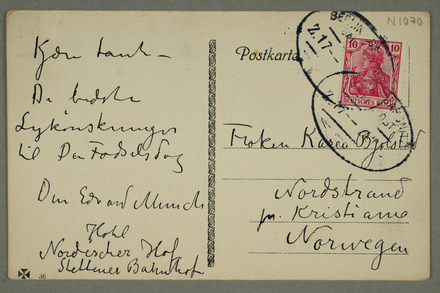 N 1070
Postkarte
BERLIN
Z. 17
10 10
DEUTSCHES REICH
Kære Tante –
De bedste
Lykønskninger
til Din Fødselsdag
Din Edvard Munch
Hotel
Nordischer Hof
Stettiner Bahnhof
36
Frøken Karen Bjølstad
Nordstrand
pr. Kristiania
Norwegen